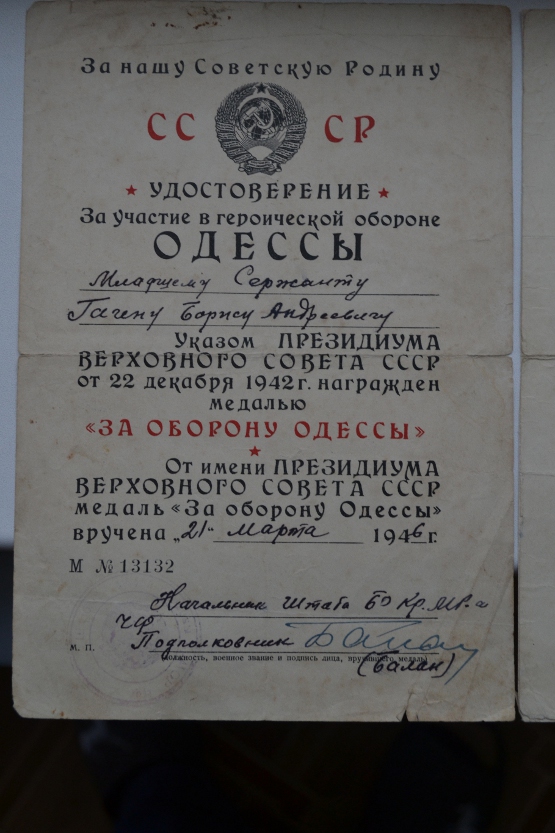 За нашу Советскую Родину
СС СР
УДОСТОВЕРЕНИЕ
За участие в героической обороне
ОДЕССЫ
Младшему Сержанту
Гагену Борису Андреевичу
Указом ПРЕЗИДИУМА
ВЕРХОВНОГО СОВЕТА СССР
от 22 декабря 1942 г. награжден
медалью
«ЗА ОБОРОНУ ОДЕССЫ»
От имени ПРЕЗИДИУМА
ВЕРХОВНОГО СОВЕТА СССР
медаль «За оборону Одессы»
вручена „21" марта 1946 г.
М № 13132
Начальник Штаба БО Кр. МР-а
ЧФ
Подполковник
М. П.
(должность, военное звание и подпись лица, вручившего медаль)
(Балан)